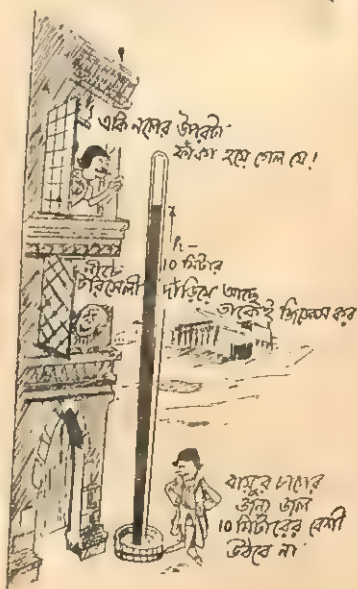 একি নলের উপরটা
ফাঁকা হয়ে গেল যে!
h=
10 মিটার
নীচে
টরিসেলী দাঁড়িয়ে আছে
তাকেই জিগ্গেস কর
বায়ুর চাপের
জন্য জল
10 মিটারের বেশী
উঠবে না